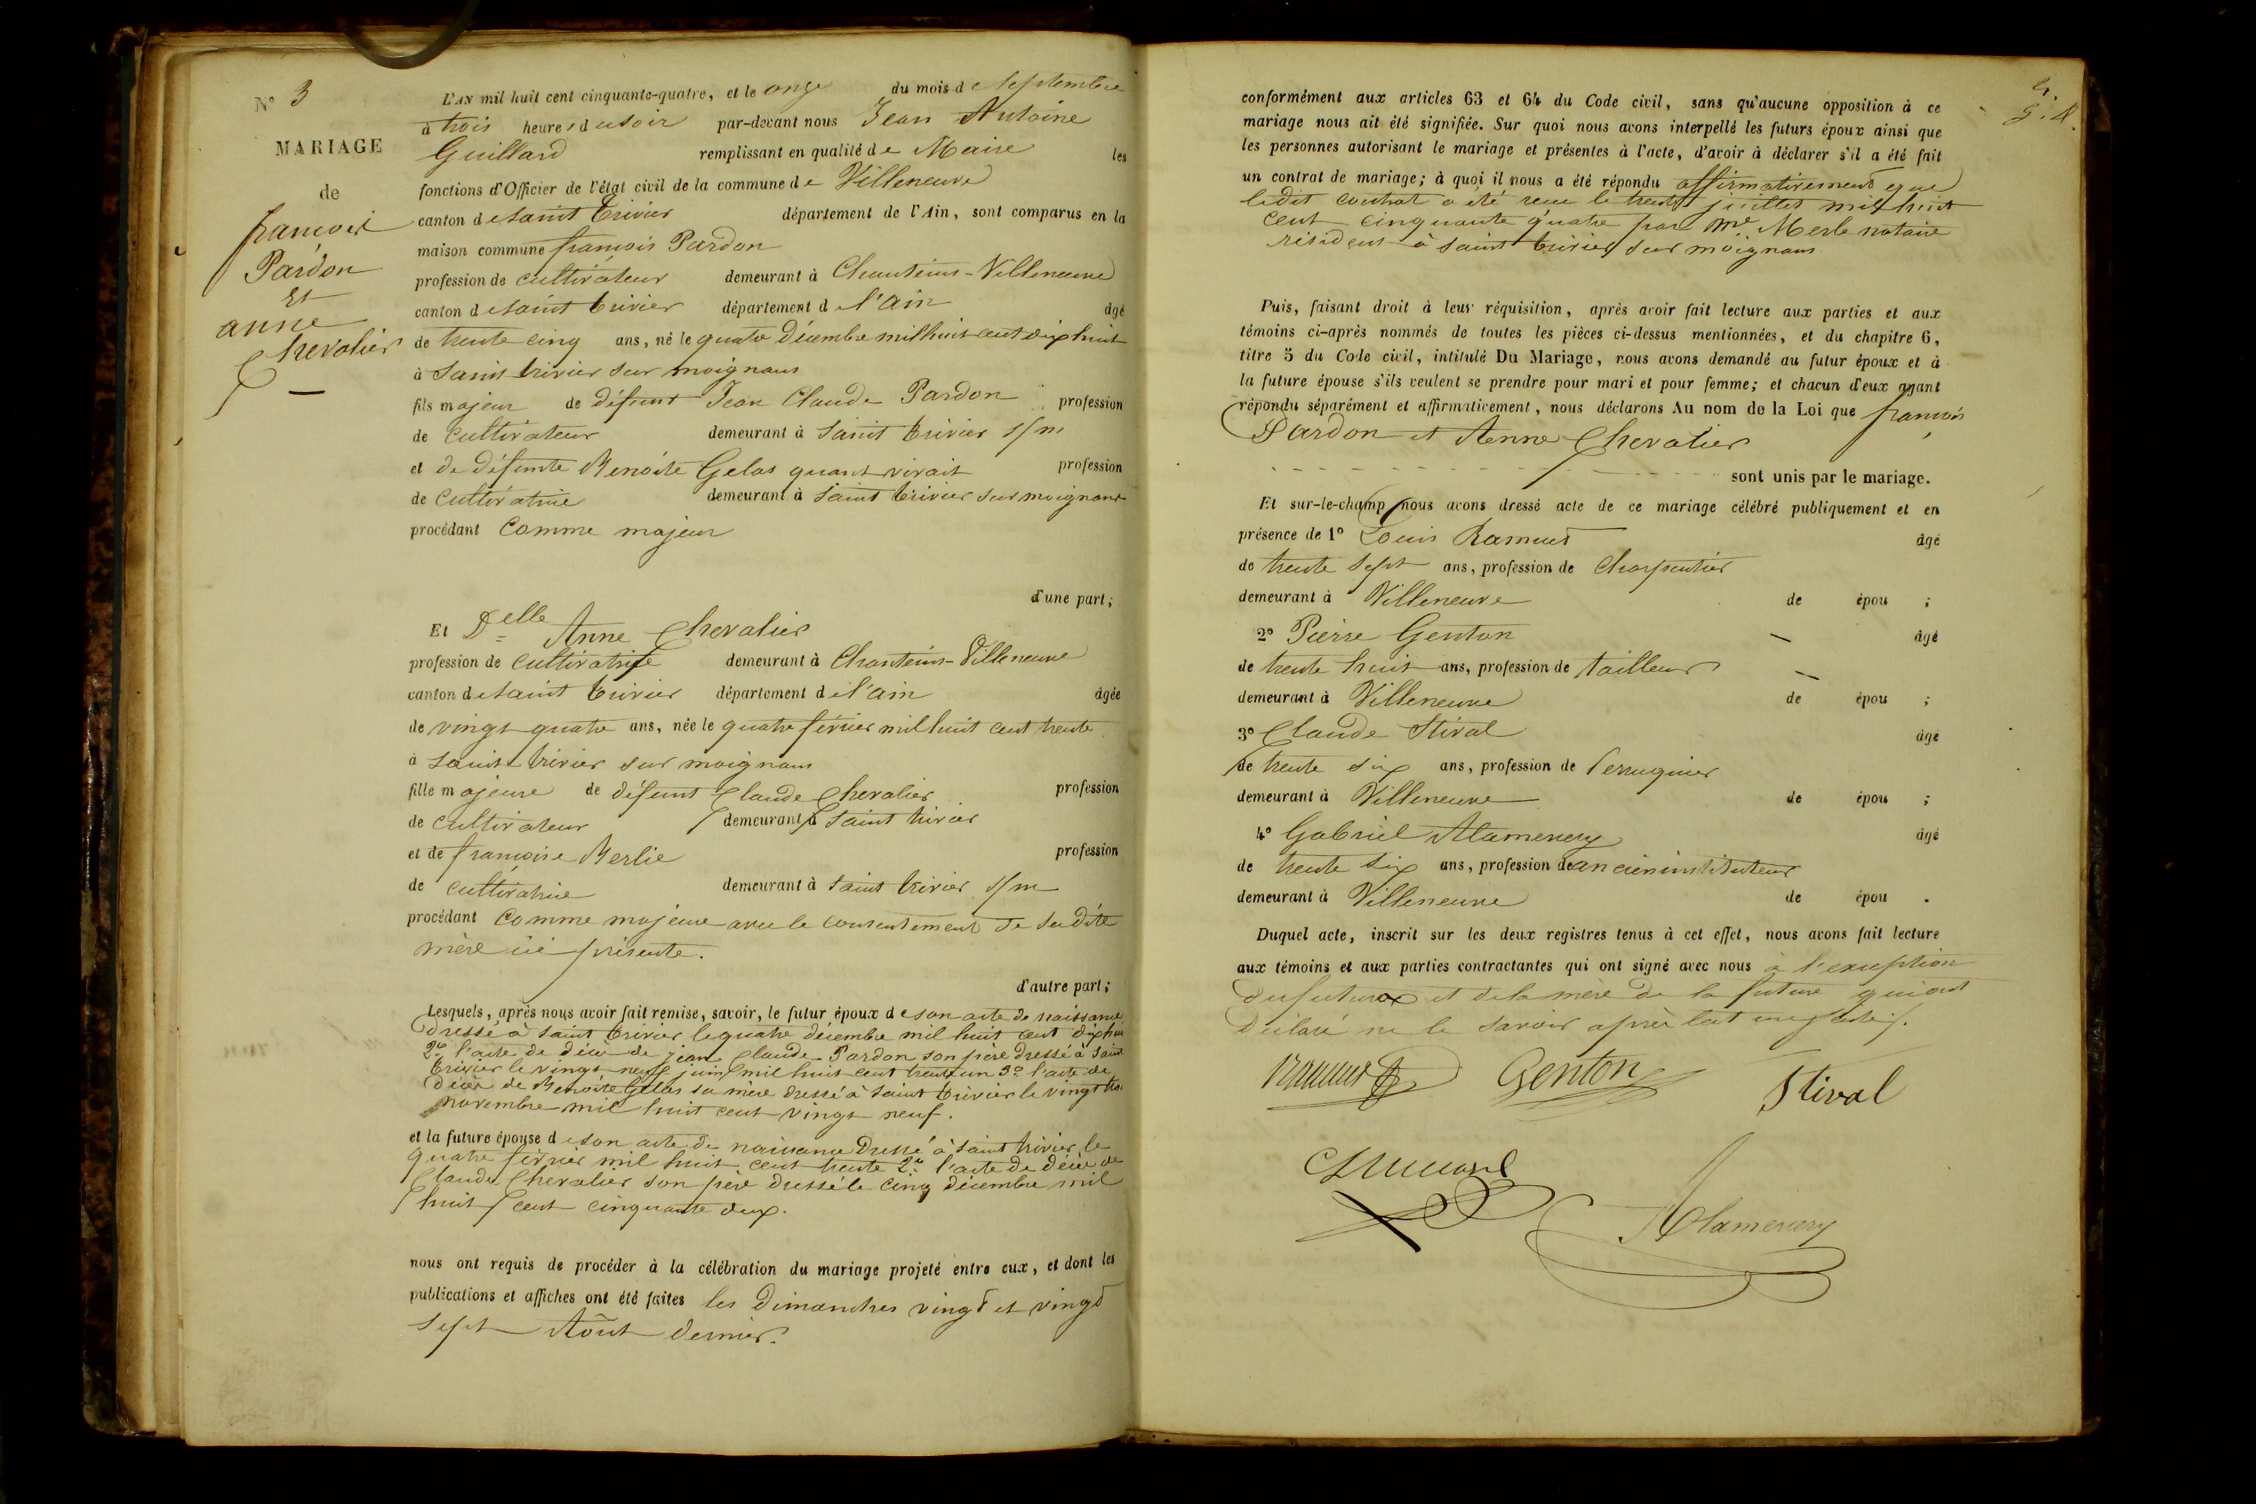 N° 3
MARIAGE
de
françois
Pardon
Et
anne
Chevalier
L'AN mil huit cent cinquante-quatre, et le onze du mois de Septembre
à trois heures du soir par-devant nous Jean Antoine
Guillard remplissant en qualité de Maire les
fonctions d'Officier de l'état civil de la commune de Villeneuve
canton de saint trivier département de l'Ain, sont comparus en la
maison commune françois Pardon
profession de cultivateur demeurant à Chanteins-Villeneuve
canton de saint trivier département de l'ain âgé
de trente cinq ans, né le quatre décembre mil huit cent dix huit
à saint trivier sur moignans
fils majeur de défunt Jean Claude Pardon profession
de cultivateur demeurant à saint trivier s/m
et de défunte Benoite Gelas quant vivait profession
de cultivatrice demeurant à saint trivier sur moignans
procédant comme majeur
d'une part;
Et Delle Anne Chevalier
profession de cultivatrice demeurant à Chanteins-Villeneuve
canton de saint trivier département de l'ain âgée
de vingt quatre ans, née le quatre févrie mil huit cent trente
à saint trivier sur moignans
fille majeure de défunt Claude Chevalier profession
de cultivateur demeurant à saint trivier
et de françoise Berlie profession
de cultivatrice demeurant à saint trivier s/m
procédant comme majeure avec le consentement de sa dite
mère ici présente.
d'autre part;
Lesquels, après nous avoir fait remise, savoir, le futur époux de son acte de naissance
dressé à saint trivier le quatre décembre mil huit cent dix huit
2° l'acte de décè de jean Claude Pardon son père dressé à saint
trivier le vingt neuf juin mil huit cent trente un 3° l'acte de
décès de Benoite Gelas sa mère dressé à saint trivier le vingt
novembre mil huit cent vingt neuf.
et la future épouse de son acte de naissance dressé à saint trivier le
quatre février mil huit cent trente 2° l'acte de décès de
Claude Chevalier son père dressé le cinq décembre mil
huit cent cinquante deux.
nous ont requis de procéder à la célébration du mariage projeté entre eux, et dont les
publications et affiches ont été faites les dimanches vingt et vingt
sept Août dernier.
conformément aux articles 63 et 64 du Code civil, sans qu'aucune opposition à ce
mariage nous ait été signifiée. Sur quoi nous avons interpellé les futurs époux ainsi que
les personnes autorisant le mariage et présentes à l'acte, d'avoir à déclarer s'il a été fait
un contrat de mariage; à quoi il nous a été répondu affirmativement que
le dit contrat a été recu le trente juillet mil huit
cent cinquante quatre par Me Merle notaire
résident à saint trivier sur moignans
Puis, faisant droit à leur réquisition, après avoir fait lecture aux parties et aux
témoins ci-après nommés de toutes les pièces ci-dessus mentionnées, et du chapitre 6,
titre 5 du Code civil, intitulé Du Mariage, nous avons demandé au futur époux et à
la future épouse s'ils veulent se prendre pour mari et pour femme; et chacun d'eux ayant
répondu séparément et affirmativement, nous déclarons Au nom de la Loi que françois
Pardon et Anne Chevalier
sont unis par le mariage.
Et sur-le-champ nous avons dressé acte de ce mariage célébré publiquement et en
présence de 1° Louis Ramuet âgé
de trente sept ans, profession de Charpentier
demeurant à Villeneuve de épou ;
2° Pierre Genton âgé
de trente huit ans, profession de tailleur
demeurant à Villeneuve de épou ;
3° Claude Stival âgé
de trente six ans, profession de Perruquier
demeurant à Villeneuve de épou ;
4° Gabriel Alamenery âgé
de trente six ans, profession de ancien instituteur
demeurant à Villeneuve de épou .
Duquel acte, inscrit sur les deux registres tenus à cet effet, nous avons fait lecture
aux témoins et aux parties contractantes qui ont signé avec nous à l'exception
des futurs et de la mère de la future qui ont
déclaré ne le savoir
Genton
Stival
Alamenery